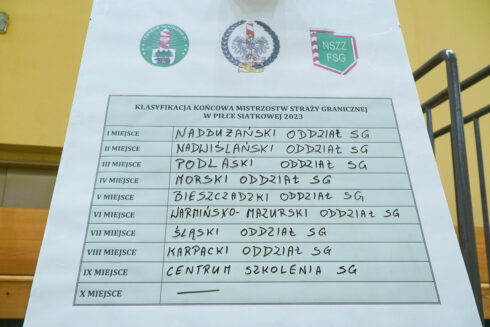 NSZZ
FSG
KLASYFIKACJA KOŃCOWA MISTRZOSTW STRAŻY GRANICZNEJ
W PIŁCE SIATKOWEJ 2023
I MIEJSCE NADBUŻAŃSKI ODDZIAŁ SG
II MIEJSCE NADWIŚLAŃSKI ODDZIAŁ SG
III MIEJSCE PODLASKI ODDZIAŁ SG
IV MIEJSCE MORSKI ODDZIAŁ SG
V MIEJSCE BIESZCZADZKI ODDZIAŁ SG
VI MIEJSCE WARMIŃSKO-MAZURSKI ODDZIAŁ SG
VII MIEJSCE ŚLĄSKI ODDZIAŁ SG
VIII MIEJSCE KARPACKI ODDZIAŁ SG
IX MIEJSCE CENTRUM SZKOLENIA SG
X MIEJSCE —